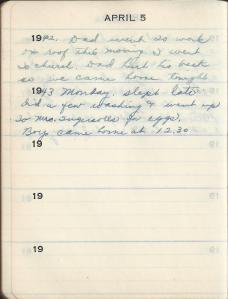 APRIL 5
1942. Dad went to work
on roof this morning I went
to church. Dad hurt his back
so we came home tonight
1943 Monday. slept late
did a few washing & went up
to Mrs. for eggs.
Boys came home at 12.30
19
19
19